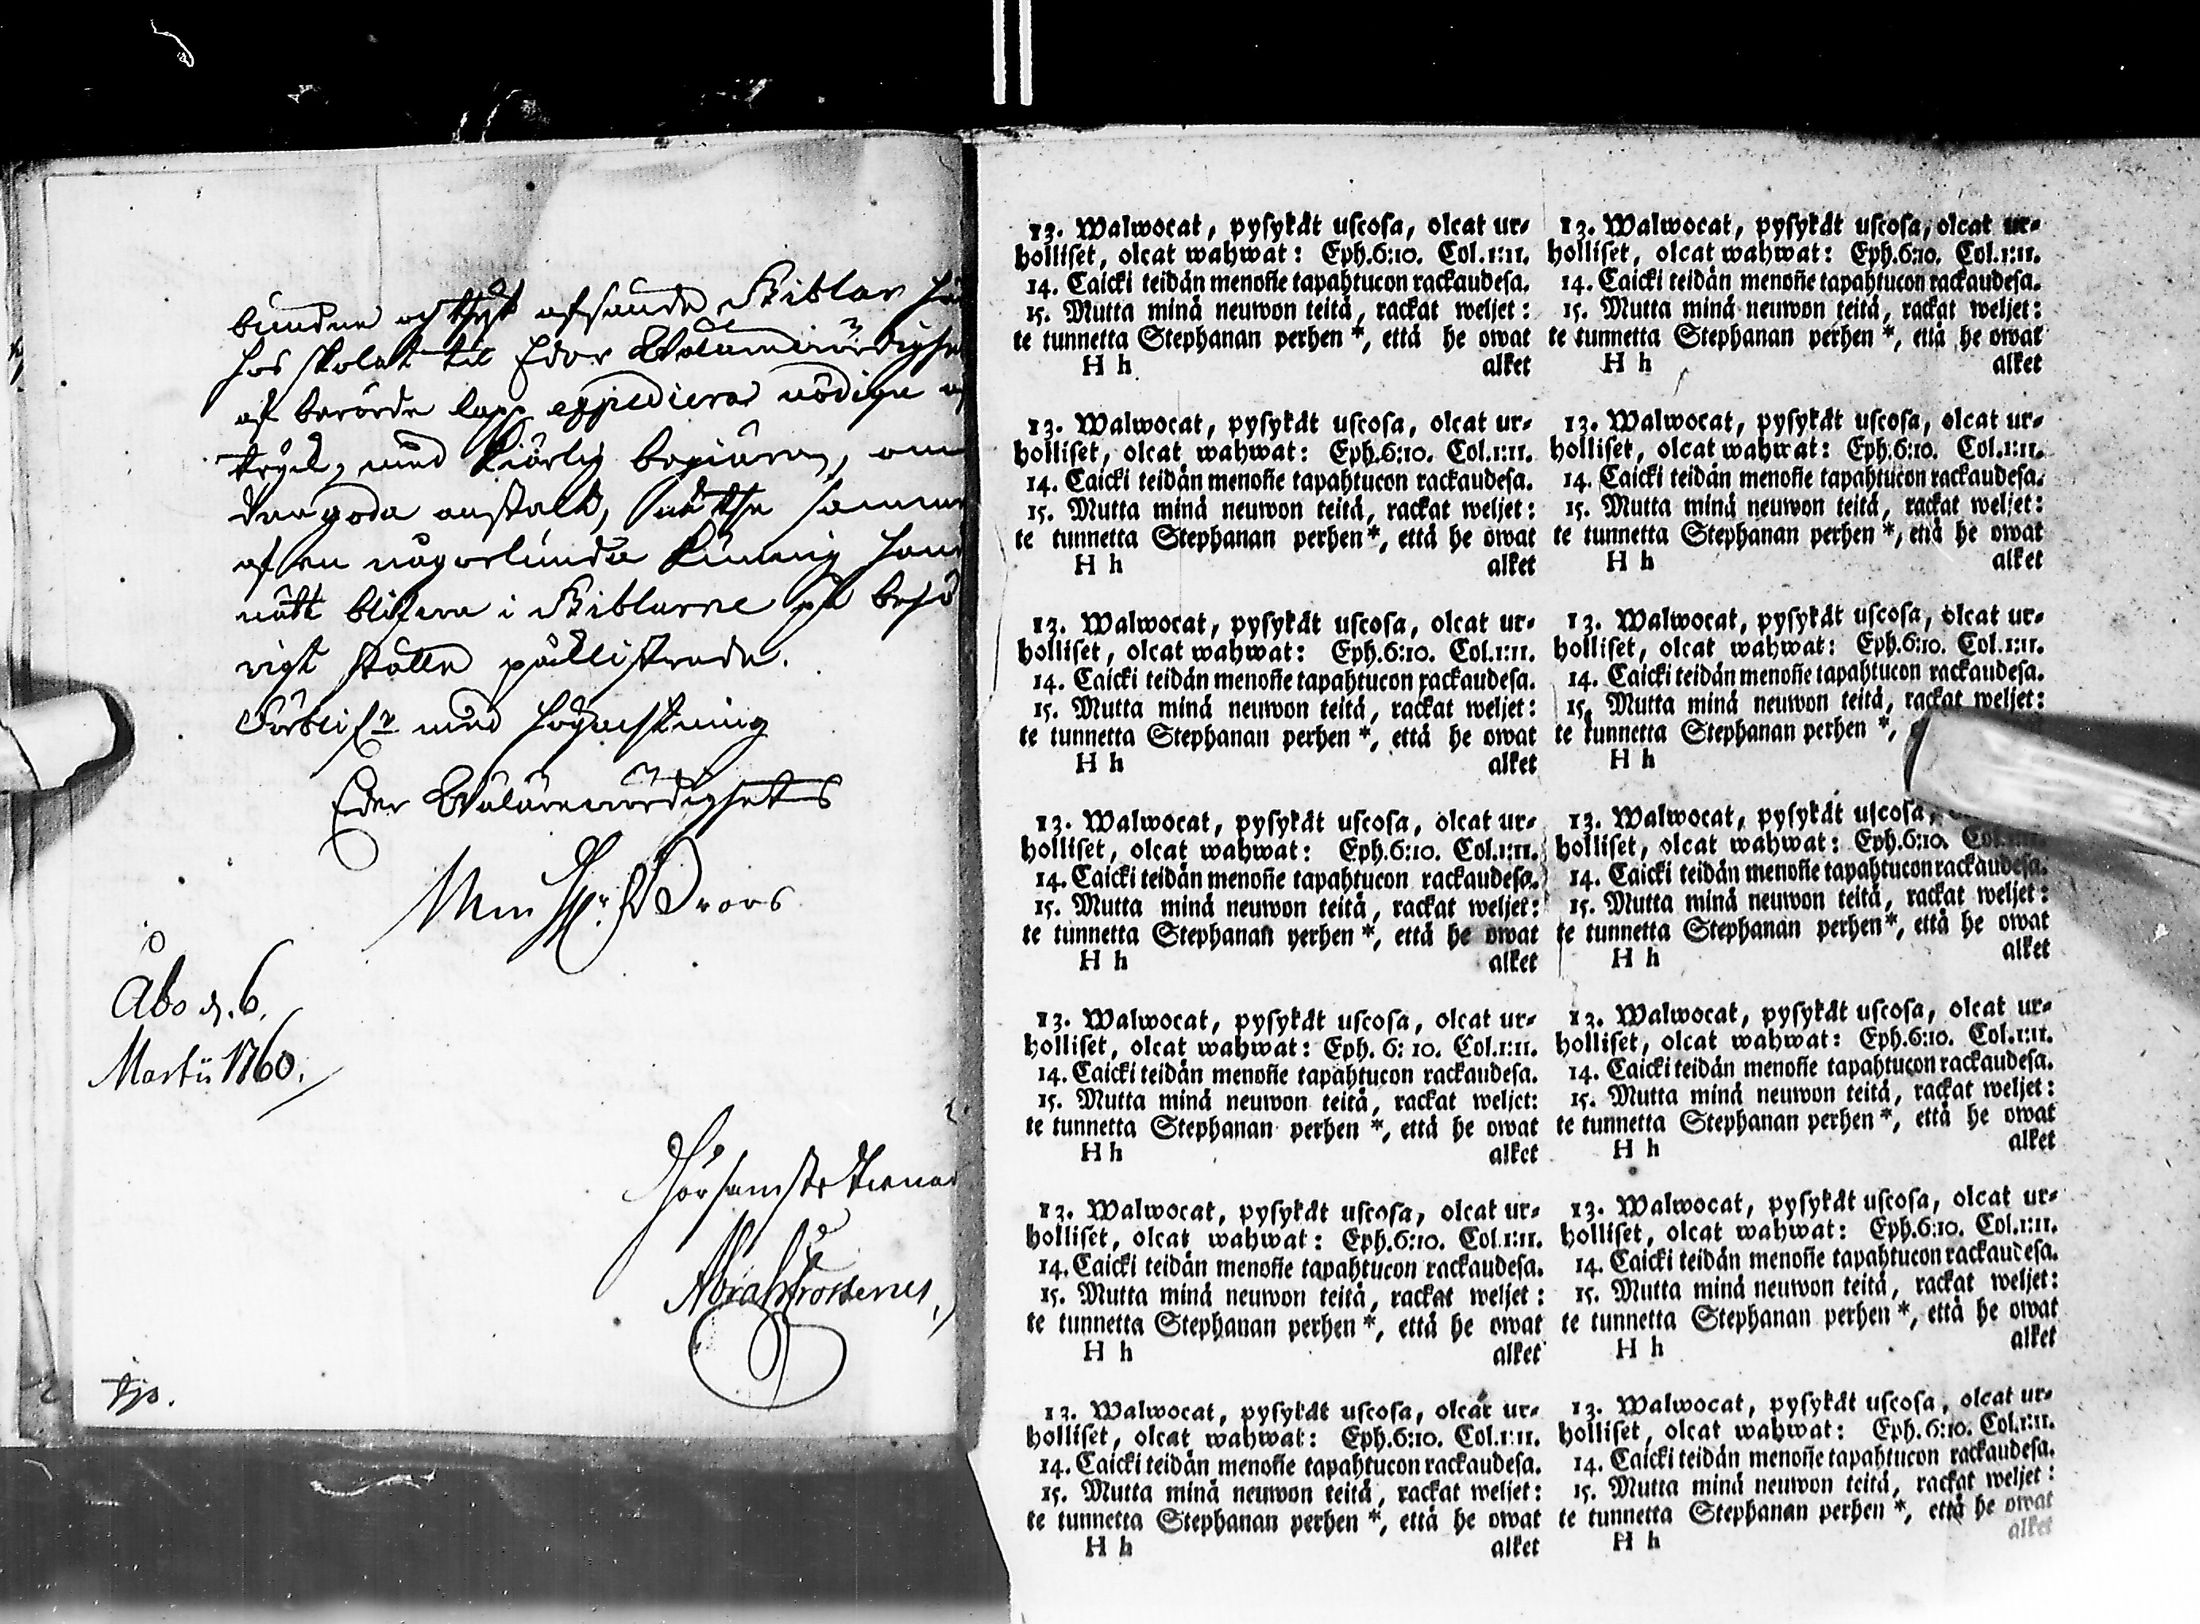 bundne och thyt afsände Biblar
hos skolat til Eder Wälärewördighet
af berörde lapp expediera nödige
tryck, med kiärlig begiäran, om
dess goda anstalt, at the
af en någorlunda kunnig
nätt blifwa i Biblarne på behö
rigt ställe påklistrade.
Förblifr med högachtning
Eder Wälärewördighets
Min Hr
Åbo d. 6.
Martii 1760.
Hörsamste tienar
13. Walwocat, pysykät uscosa, olcat ur-
holliset, olcat wahwat: Eph.6:10. Col.1:11.
14. Caicki teidän menoñe tapahtucon rackaudesa.
15. Mutta minä neuwon teitä, rackat weljet:
te tunnetta Stephanan perhen *, että he owat
H h alket
13. Walwocat, pysykät uscosa, olcat ur-
holliset, olcat wahwat: Eph.6:10. Col.1:11.
14. Caicki teidän menoñe tapahtucon rackaudesa.
15. Mutta minä neuwon teitä, rackat weljet:
te tunnetta Stephanan perhen *, että he owat
H h alket
13. Walwocat, pysykät uscosa, olcat ur-
holliset, olcat wahwat: Eph.6:10. Col.1:11.
14. Caicki teidän menoñe tapahtucon rackaudesa.
15. Mutta minä neuwon teitä, rackat weljet:
te tunnetta Stephanan perhen *, että he owat
H h alket
13. Walwocat, pysykät uscosa, olcat ur-
holliset, olcat wahwat: Eph.6:10. Col.1:11.
14. Caicki teidän menoñe tapahtucon rackaudesa.
15. Mutta minä neuwon teitä, rackat weljet:
te tunnetta Stephanan yerhen *, että he owat
H h alket
13. Walwocat, pysykät uscosa, olcat ur-
holliset, olcat wahwat: Eph. 6: 10. Col.1:11.
14. Caicki teidän menoñe tapahtucon rackaudesa.
15. Mutta minä neuwon teitä, rackat weljet:
te tunnetta Stephanan perhen *, että he owat
H h alket
13. Walwocat, pysykät uscosa, olcat ur-
holliset, olcat wahwat: Eph.6:10. Col.1:11.
14. Caicki teidän menoñe tapahtucon rackaudesa.
15. Mutta minä neuwon teitä, rackat weljet:
te tunnetta Stephanan perhen *, että he owat
H h alket
13. Walwocat, pysykät uscosa, olcat ur-
holliset, olcat wahwat: Eph.6:10. Col.1:11.
14. Caicki teidän menoñe tapahtucon rackaudesa.
15. Mutta minä neuwon teitä, rackat weljet:
te tunnetta Stephanan perhen *, että he owat
H h alket
13. Walwocat, pysykät uscosa, olcat ur-
holliset, olcat wahwat: Eph.6:10. Col.1:11.
14. Caicki teidän menoñe tapahtucon rackaudesa.
15. Mutta minä neuwon teitä, rackat weljet:
te tunnetta Stephanan perhen *, että he owat
H h alket
13. Walwocat, pysykät uscosa, olcat ur-
holliset, olcat wahwat: Eph.6:10. Col.1:11.
14. Caicki teidän menoñe tapahtucon rackaudesa.
15. Mutta minä neuwon teitä, rackat weljet:
te tunnetta Stephanan perhen *, että he owat
H h alket
13. Walwocat, pysykät uscosa, olcat ur-
holliset, olcat wahwat: Eph.6:10. Col.1:11.
14. Caicki teidän menoñe tapahtucon rackaudesa.
15. Mutta minä neuwon teitä, rackat weljet:
te tunnetta Stephanan perhen *,
H h
13. Walwocat, pysykät uscosa,
holliset, olcat wahwat: Eph.6:10. Col.1:11.
14. Caicki teidän menoñe tapahtucon rackaudesa.
15. Mutta minä neuwon teitä, rackat weljet:
te tunnetta Stephanan perhen *, että he owat
H h alket
13. Walwocat, pysykät uscosa, olcat ur-
holliset, olcat wahwat: Eph.6:10. Col.1:11.
14. Caicki teidän menoñe tapahtucon rackaudesa.
15. Mutta minä neuwon teitä, rackat weljet:
te tunnetta Stephanan perhen *, että he owat
H h alket
13. Walwocat, pysykät uscosa, olcat ur-
holliset, olcat wahwat: Eph.6:10. Col.1:11.
14. Caicki teidän menoñe tapahtucon rackaudesa.
15. Mutta minä neuwon teitä, rackat weljet:
te tunnetta Stephanan perhen *, että he owat
H h alket
13. Walwocat, pysykät uscosa, olcat ur-
holliset, olcat wahwat: Eph.6:10. Col.1:11.
14. Caicki teidän menoñe tapahtucon rackaudesa.
15. Mutta minä neuwon teitä, rackat weljet:
te tunnetta Stephanan perhen *, että he owat
H h alket